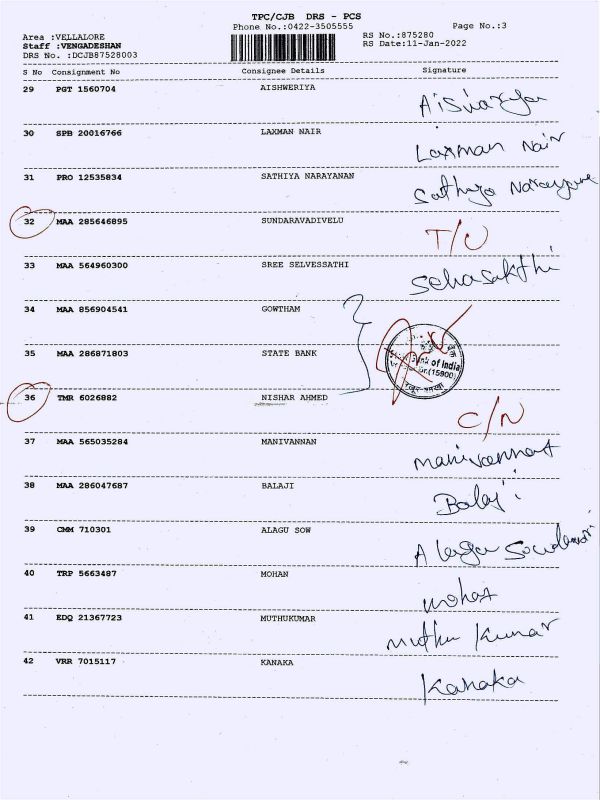 TPC/CJB DRS - PCS
Phone No.:0422-3505555
Page No.:3
Area :VELLALORE
RS No.:875280
Staff :VENGADESHAN
RS Date:11-Jan-2022
DRS No. :DCJB87528003
S No Consignment No Consignee Details Signature
29 PGT 1560704 AISHWERIYA
Aiswarya
30 SPB 20016766 LAXMAN NAIR
Laxman Nair
31 PRO 12535834 SATHIYA NARAYANAN
Sathya Narayane
32 MAA 285646895 SUNDARAVADIVELU
T/U
33 MAA 564960300 SREE SELVESSATHI
Selvasakthi
34 MAA 856904541 GOWTHAM
35 MAA 286871803 STATE BANK
Bank of India
(15900)
36 TMR 6026882 NISHAR AHMED
C/N
37 MAA 565035284 MANIVANNAN
Manivannan
38 MAA 286047687 BALAJI
Balaji
39 CMM 710301 ALAGU SOW
Alagu
40 TRP 5663487 MOHAN
Mohan
41 EDQ 21367723 MUTHUKUMAR
Muthu Kumar
42 VRR 7015117 KANAKA
Kanaka